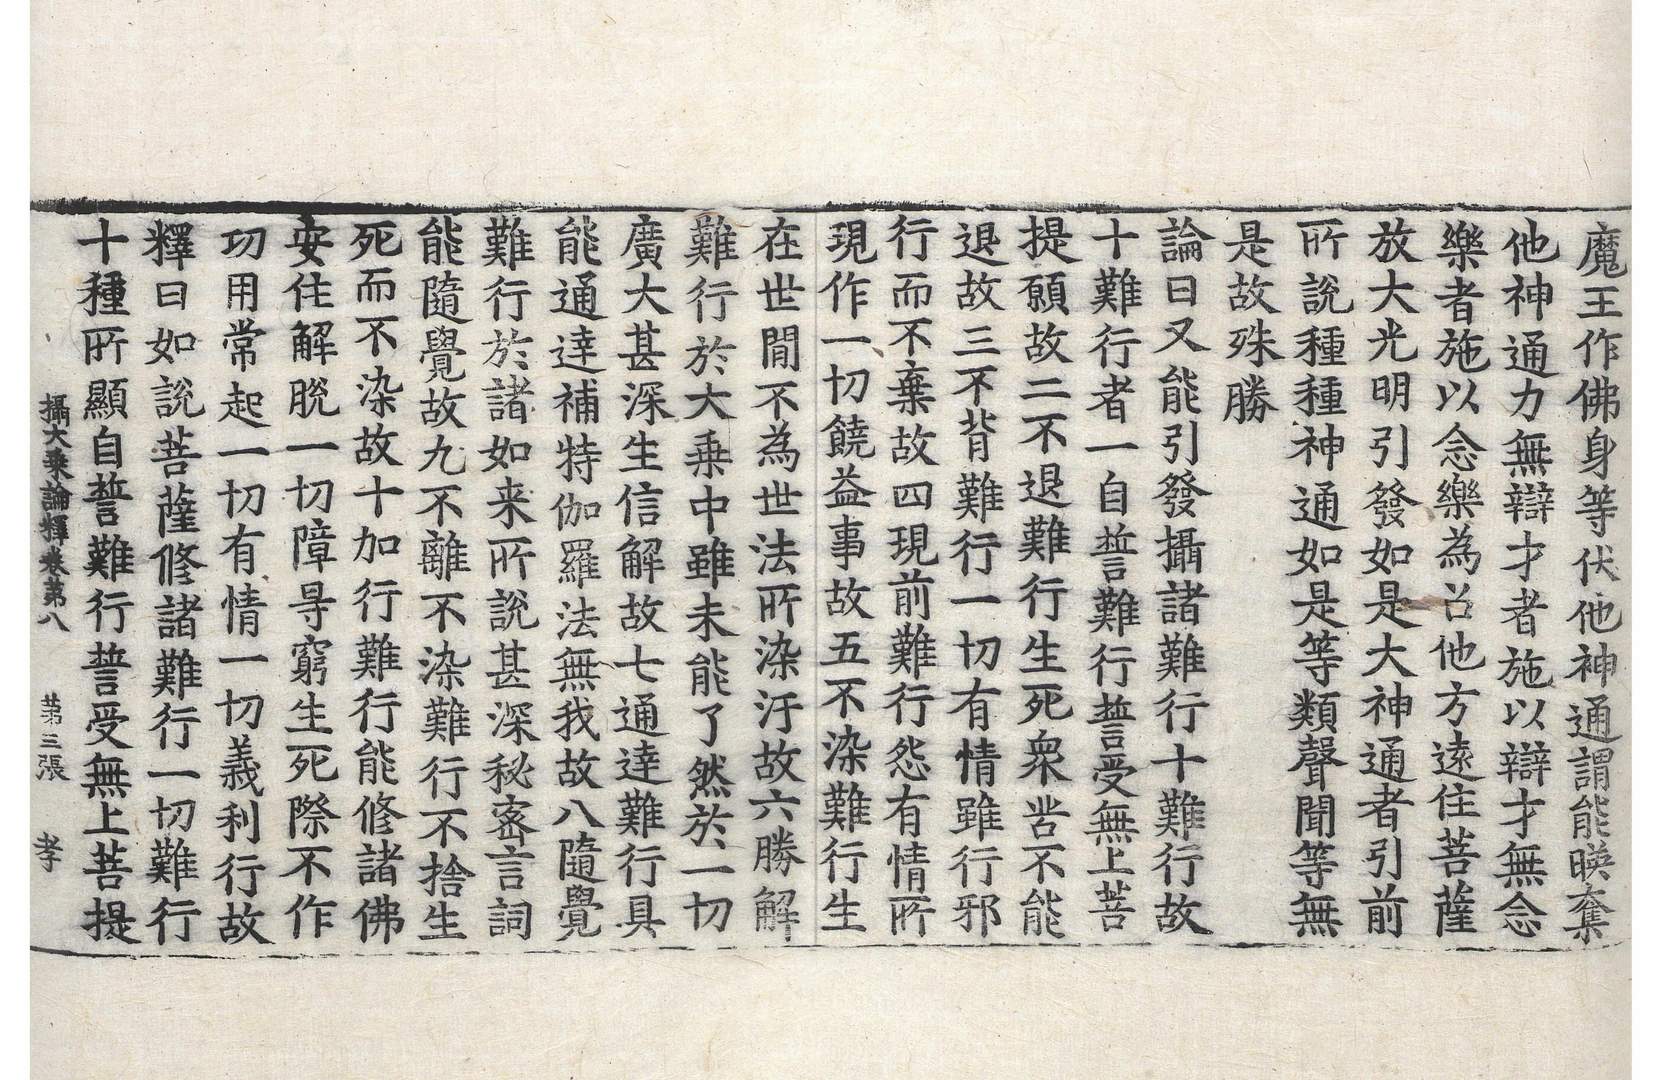 魔王作佛身等伏他神通謂能暎奪
他神通力無辯才者施以辯才無念
樂者施以念樂為召他方遠住菩薩
放大光明引發如是大神通者引前
所說種種神通如是等類聲聞等無
是故殊勝
論曰又能引發攝諸難行十難行故
十難行者一自誓難行誓受無上菩
提願故二不退難行生死衆苦不能
退故三不背難行一切有情雖行邪
行而不棄故四現前難行怨有情所
現作一切饒益事故五不染難行生
在世間不為世法所染汙故六勝解
難行於大乘中雖未能了然於一切
廣大甚深生信解故七通達難行具
能通達補特伽羅法無我故八隨覺
難行於諸如来所說甚深秘密言詞
能隨覺故九不離不染難行不捨生
死而不染故十加行難行能修諸佛
安住解脫一切障㝵窮生死際不作
功用常起一切有情一切義利行故
釋曰如說菩薩修諸難行一切難行
十種所顯自誓難行誓受無上菩提
攝大乘論釋卷第八　第三張　孝